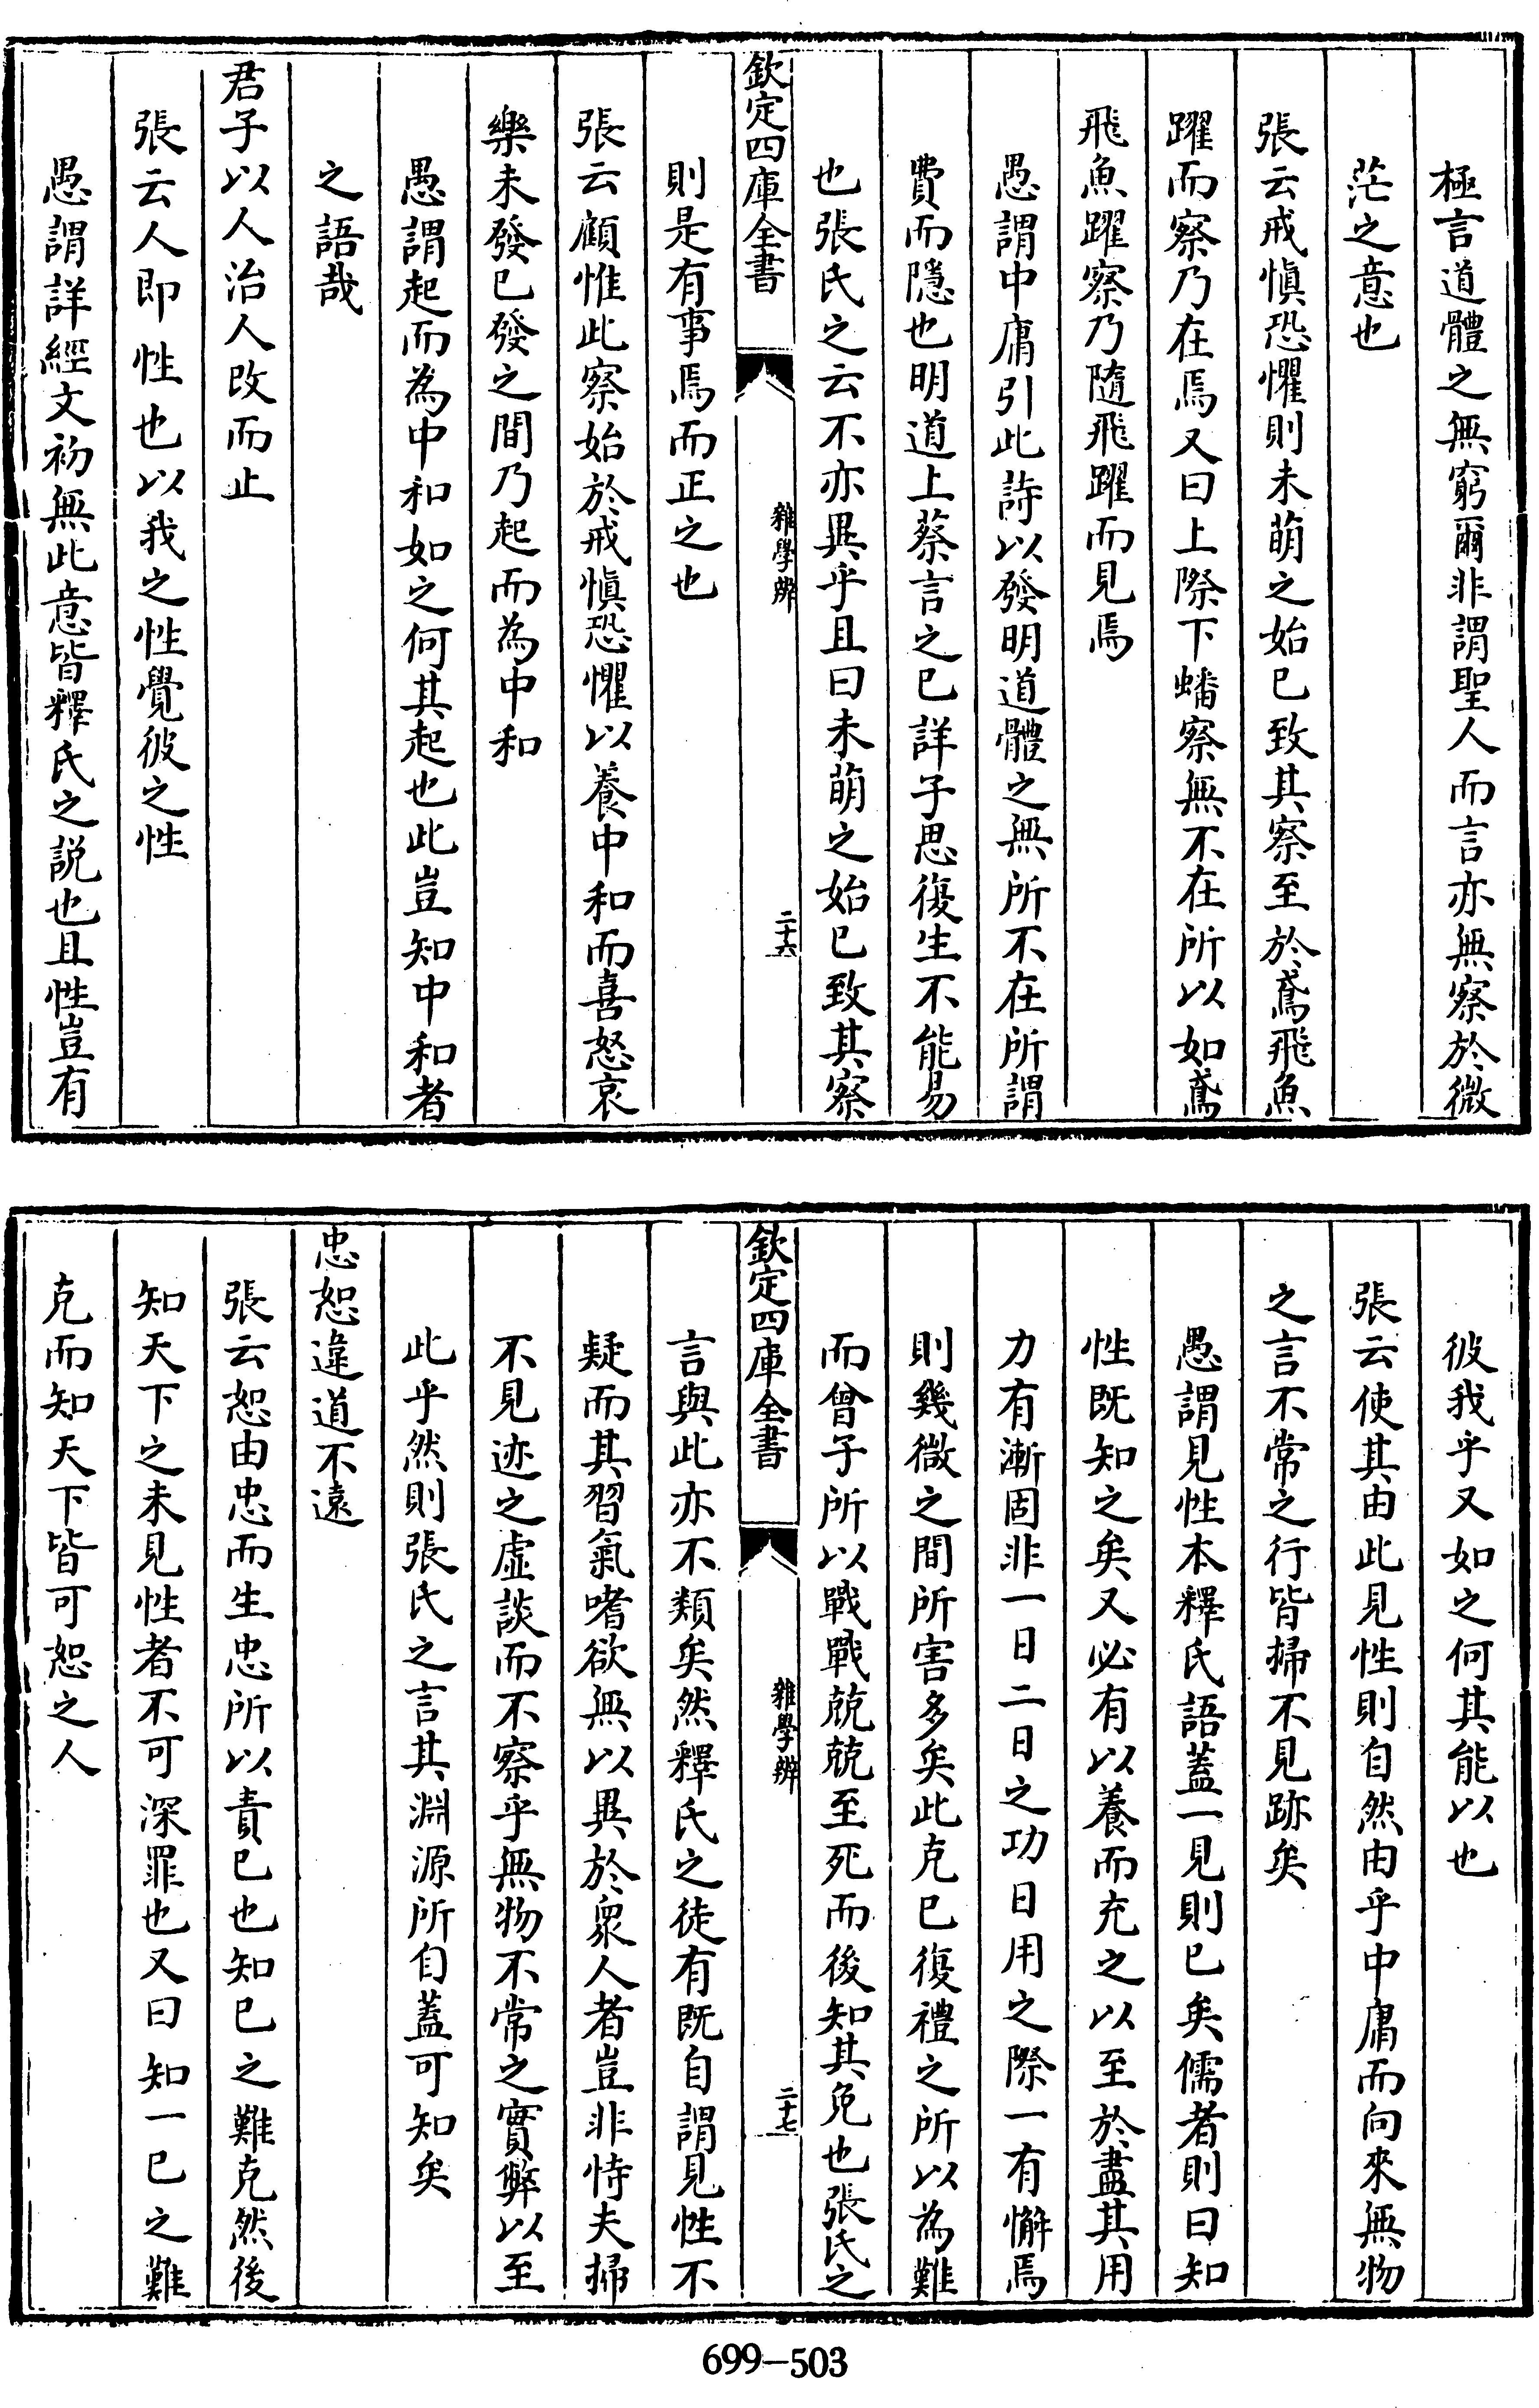 極言道體之無窮爾非謂聖人而言亦無察於微
茫之意也
張云戒慎恐懼則未萌之始已致其察至於鳶飛魚
躍而察乃在焉又曰上際下蟠察無不在所以如鳶
飛魚躍察乃隨飛躍而見焉
愚謂中庸引此詩以發明道體之無所不在所謂
費而隱也明道上蔡言之已詳子思復生不能易
也張氏之云不亦異乎且曰未萌之始已致其察
欽定四庫全書
雜學辨
二十六
則是有事焉而正之也
張云顧惟此察始於戒慎恐懼以養中和而喜怒哀
樂未發已發之間乃起而為中和
愚謂起而為中和如之何其起也此豈知中和者
之語哉
君子以人治人改而止
張云人即性也以我之性覺彼之性
愚謂詳經文初無此意皆釋氏之説也且性豈有
彼我乎又如之何其能以也
張云使其由此見性則自然由乎中庸而向來無物
之言不常之行皆掃不見跡矣
愚謂見性本釋氏語蓋一見則已矣儒者則曰知
性既知之矣又必有以養而充之以至於盡其用
力有漸固非一日二日之功日用之際一有懈焉
則幾微之間所害多矣此克己復禮之所以為難
而曾子所以戰戰兢兢至死而後知其免也張氏之
欽定四庫全書
雜學辨
二十七
言與此亦不類矣然釋氏之徒有既自謂見性不
疑而其習氣嗜欲無以異於衆人者豈非恃夫掃
不見迹之虛談而不察乎無物不常之實弊以至
此乎然則張氏之言其淵源所自蓋可知矣
忠恕違道不遠
張云恕由忠而生忠所以責已也知已之難克然後
知天下之未見性者不可深罪也又曰知一已之難
克而知天下皆可恕之人
699-503